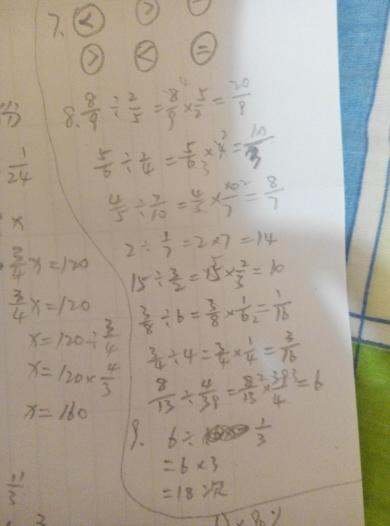 7. < > =
> < =
8. 8/9 ÷ 2/5 = 8/9 × 5/2 = 20/9
5/6 ÷ 1/4 = 5/6 × 4 = 10/3
4/5 ÷ 7/10 = 4/5 × 10/7 = 8/7
2 ÷ 1/7 = 2 × 7 = 14
15 ÷ 3/2 = 15 × 2/3 = 10
3/8 ÷ 6 = 3/8 × 1/6 = 1/16
3/4 ÷ 4 = 3/4 × 1/4 = 3/16
8/13 ÷ 4/39 = 8/13 × 39/4 = 6
9. 6 ÷ 1/3
= 6 × 3
= 18
1/24
x
3/4 x = 120
3/4 x = 120
x = 120 ÷ 3/4
x = 120 × 4/3
x = 160